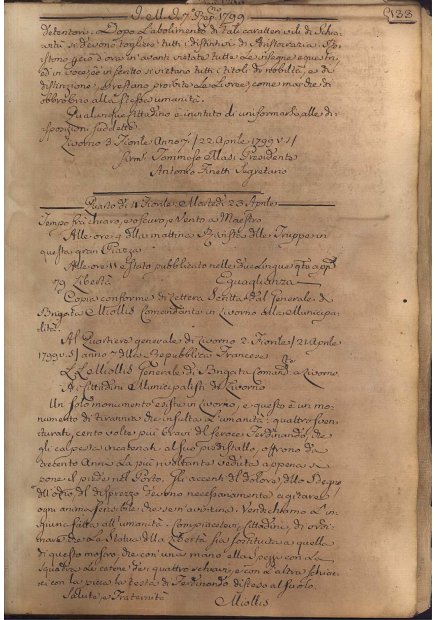 J. M. J. 7 Rap. 1799
188
detentori. Dopo l'abolimento di tali caratteri vili di Schia-
vitù si devono togliere tutti i distintivi di Aristocrazia. Re-
stono giò d'ora in avanti vietate tutte le insegne equestri,
di in voce, e in scritto si vietano tutti i titoli di nobilità, e di
distinzione; Restano proibite le Livree, come marche di
obbrobrio alla stessa umanità.
Qualunque Cittadino è invitato di uniformarsi alle di-
sposizioni suddette.
Livorno 3 Fiorile Anno 7 / 22 Aprile 1799 v. s /
Tommaso Masi Presidente
Antonio Segretario
Quarto dì 4 Fiorile: Martedì 23 Aprile
Tempo frà chiaro, e oscuro, e Vento a Maestro
Alle ore 9 della mattina Rivista delle Truppe in
questa gran Piazza.
Alle ore 11 è stato pubblicato nelle due lingue
79 Libertà Eguaglianza
Copia conforme di Lettera scritta dal Generale di
Brigata Miollis Comandante in Livorno alla Municipa-
lità.
Al Quartiere generale di Livorno 2 Fiorile / 21 Aprile
1799 v. s / anno 7 della Repubblica Francese
Miollis Generale di Brigata Comand. a Livorno
Ai Cittadini Municipalisti di Livorno
Un solo monumento esiste in Livorno, e questo è un mo-
numento di tirannia che insulta l'umanità: quattro sven-
turati, cento volte più bravi del feroce Ferdinando, che
gli calpesta incatenati al suo piedistallo, offrono da
trecento Anni la più rivoltante veduta appena si
pone il piede nel Porto. Gli accenti del dolore, dello sdegno
dell'odio, del disprezzo devono necessariamente agitare
ogni anima sensibile che se ne avvicina. Vendichiamo l'in-
giuria fatta all'umanità: compiacetevi, Cittadini, di ordi-
nare che la Statua della Libertà sia sostituita a quella
di questo mostro, che con una mano ella spezzi con la
le catene dei quattro schiavi, e con l'altra schiac-
ci con la picca la testa di Ferdinando disteso al suolo.
Salute e Fraternità
Miollis